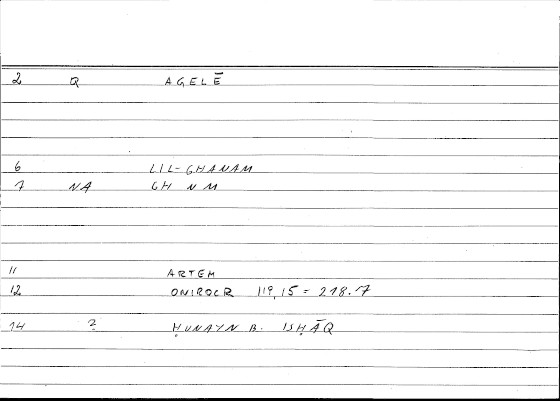 2 Q AGELĒ
6 LIL-GHANAM
7 NA GH N M
11 ARTEM
12 ONIROCR 119,15 = 218.7
14 ? ḤUNAYN B. ISḤĀQ